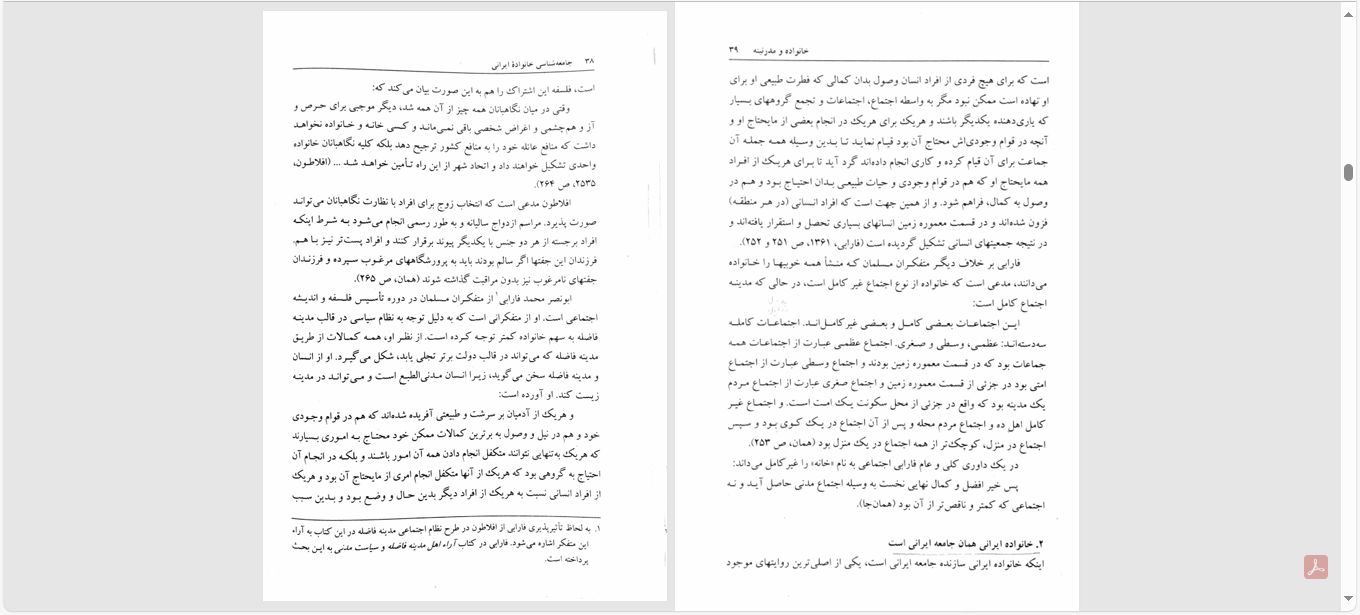 ۳۸ جامعه‌شناسی خانوادهٔ ایرانی
است، فلسفه این اشتراک را هم به این صورت بیان می‌کند که:
وقتی در میان نگاهبانان همه چیز از آن همه شد، دیگر موجبی برای حرص و
آز و هم‌چشمی و اغراض شخصی باقی نمی‌ماند و کسی خانه و خانواده نخواهد
داشت که منافع عائله خود را به منافع کشور ترجیح دهد بلکه کلیه نگاهبانان خانواده
واحدی تشکیل خواهند داد و اتحاد شهر از این راه تأمین خواهد شد ... (افلاطون،
۲۵۳۵، ص ۲۶۴).
افلاطون مدعی است که انتخاب زوج برای افراد با نظارت نگاهبانان می‌تواند
صورت پذیرد. مراسم ازدواج سالیانه و به طور رسمی انجام می‌شود به شرط اینکه
افراد برجسته از هر دو جنس با یکدیگر پیوند برقرار کنند و افراد پست‌تر نیز با هم.
فرزندان این جفتها اگر سالم بودند باید به پرورشگاههای مرغوب سپرده و فرزندان
جفتهای نامرغوب نیز بدون مراقبت گذاشته شوند (همان، ص ۲۶۵).
ابونصر محمد فارابی۱ از متفکران مسلمان در دوره تأسیس فلسفه و اندیشه
اجتماعی است. او از متفکرانی است که به دلیل توجه به نظام سیاسی در قالب مدینه
فاضله به سهم خانواده کمتر توجه کرده است. از نظر او، همه کمالات از طریق
مدینه فاضله که می‌تواند در قالب دولت برتر تجلی یابد، شکل می‌گیرد. او از انسان
و مدینه فاضله سخن می‌گوید، زیرا انسان مدنی‌الطبع است و می‌تواند در مدینه
زیست کند. او آورده است:
و هریک از آدمیان بر سرشت و طبیعتی آفریده شده‌اند که هم در قوام وجودی
خود و هم در نیل و وصول به برترین کمالات ممکن خود محتاج به اموری بسیارند
که هریک به‌تنهایی نتوانند متکفل انجام دادن همه آن امور باشند و بلکه در انجام آن
احتیاج به گروهی بود که هریک از آنها متکفل انجام امری از مایحتاج آن بود و هریک
از افراد انسانی نسبت به هریک از افراد دیگر بدین حال و وضع بود و بدین سبب
۱. به لحاظ تأثیرپذیری فارابی از افلاطون در طرح نظام اجتماعی مدینه فاضله در این کتاب به آراء
این متفکر اشاره می‌شود. فارابی در کتاب آراء اهل مدینه فاضله و سیاست مدنی به این بحث
پرداخته است.
خانواده و مدرنیته ۳۹
است که برای هیچ فردی از افراد انسان وصول بدان کمالی که فطرت طبیعی او برای
او نهاده است ممکن نبود مگر به واسطه اجتماع، اجتماعات و تجمع گروههای بسیار
که یاری‌دهنده یکدیگر باشند و هریک برای هریک در انجام بعضی از مایحتاج او و
آنچه در قوام وجودی‌اش محتاج آن بود قیام نماید تا بدین وسیله همه جمله آن
جماعت برای آن قیام کرده و کاری انجام داده‌اند گرد آید تا برای هریک از افراد
همه مایحتاج او که هم در قوام وجودی و حیات طبیعی بدان احتیاج بود و هم در
وصول به کمال، فراهم شود. و از همین جهت است که افراد انسانی (در هر منطقه)
فزون شده‌اند و در قسمت معموره زمین انسانهای بسیاری تحصل و استقرار یافته‌اند و
در نتیجه جمعیتهای انسانی تشکیل گردیده است (فارابی، ۱۳۶۱، ص ۲۵۱ و ۲۵۲).
فارابی بر خلاف دیگر متفکران مسلمان که منشأ همه خوبیها را خانواده
می‌دانند، مدعی است که خانواده از نوع اجتماع غیر کامل است، در حالی که مدینه
اجتماع کامل است:
این اجتماعات بعضی کامل و بعضی غیرکامل‌اند. اجتماعات کامله
سه‌دسته‌اند: عظمی، وسطی و صغری. اجتماع عظمی عبارت از اجتماعات همه
جماعات بود که در قسمت معموره زمین بودند و اجتماع وسطی عبارت از اجتماع
امتی بود در جزئی از قسمت معموره زمین و اجتماع صغری عبارت از اجتماع مردم
یک مدینه بود که واقع در جزئی از محل سکونت یک امت است. و اجتماع غیر
کامل اهل ده و اجتماع مردم محله و پس از آن اجتماع در یک کوی بود و سپس
اجتماع در منزل، کوچک‌تر از همه اجتماع در یک منزل بود (همان، ص ۲۵۳).
در یک داوری کلی و عام فارابی اجتماعی به نام «خانه» را غیرکامل می‌داند:
پس خیر افضل و کمال نهایی نخست به وسیله اجتماع مدنی حاصل آید و نه
اجتماعی که کمتر و ناقص‌تر از آن بود (همان‌جا).
۲. خانواده ایرانی همان جامعه ایرانی است
اینکه خانواده ایرانی سازنده جامعه ایرانی است، یکی از اصلی‌ترین روایتهای موجود